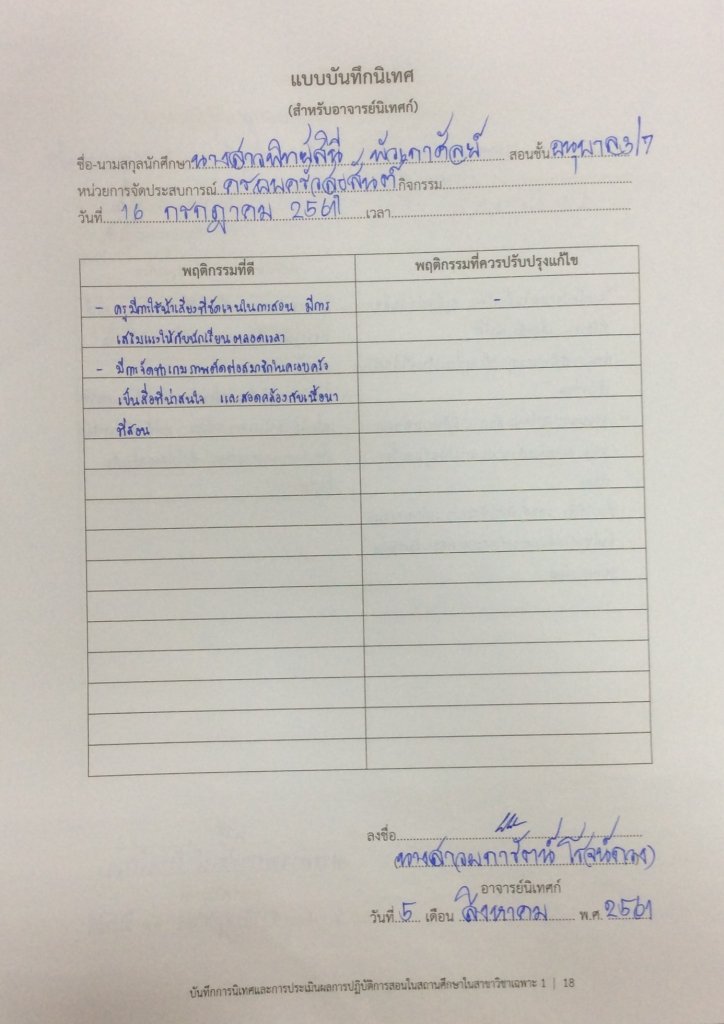 แบบบันทึกนิเทศ
(สำหรับอาจารย์นิเทศก์)
ชื่อ-นามสกุลนักศึกษา นางสาว สอนชั้น อนุบาล 3/7
หน่วยการจัดประสบการณ์ ครอบครัวสุขสันต์ กิจกรรม
วันที่ 16 กรกฎาคม 2561 เวลา
พฤติกรรมที่ดี พฤติกรรมที่ควรปรับปรุงแก้ไข
- ครูมีการใช้น้ำเสียงที่ชัดเจนในการสอน มีการ -
เสริมแรงให้กับนักเรียนตลอดเวลา
- มีการจัดทำเกมภาพตัดต่อสมาชิกในครอบครัว
เป็นสื่อที่น่าสนใจ และสอดคล้องกับเนื้อหา
ที่สอน
ลงชื่อ
(นางสาว )
อาจารย์นิเทศก์
วันที่ 5 เดือน สิงหาคม พ.ศ. 2561
บันทึกการนิเทศและการประเมินผลการปฏิบัติการสอนในสถานศึกษาในสาขาวิชาเฉพาะ 1 | 18